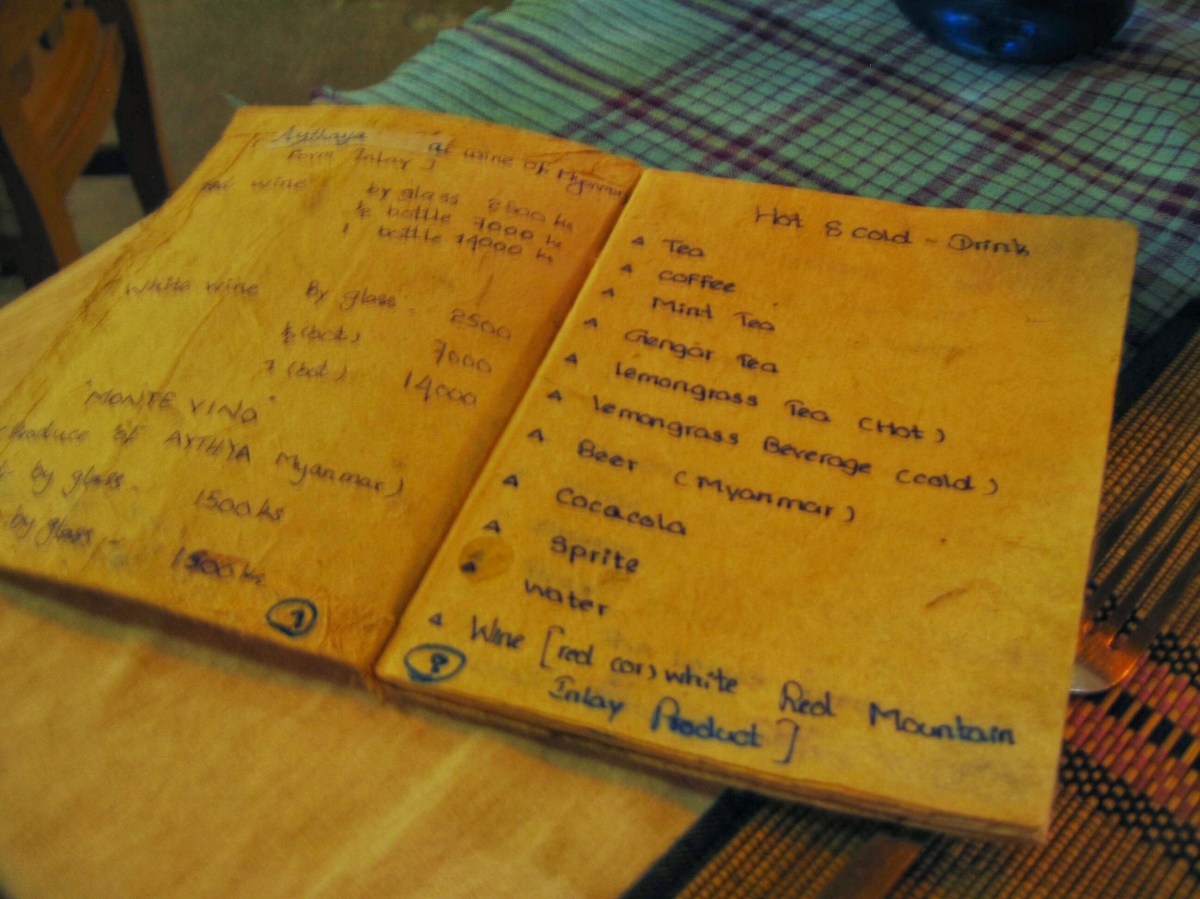 Aythaya at wine of Myanmar
Form Inlay ]
wine by glass 2500 ks
½ bottle 7000 ks
1 bottle 14000 ks
White wine By glass. 2500
½ (bot) 7000
1 (bot) 14000
"MONTE VINO"
Produce of AYTHYA Myanmar)
by glass. 1500 ks
by glass - 1500 ks
1
Hot & cold - Drink
Tea
coffee
Mint Tea
Gengar Tea
Lemongrass Tea (Hot)
Lemongrass Beverage (cold)
Beer (Myanmar)
Cocacola
Sprite
water
Wine [red (or) white Red Mountain
Inlay Product ]